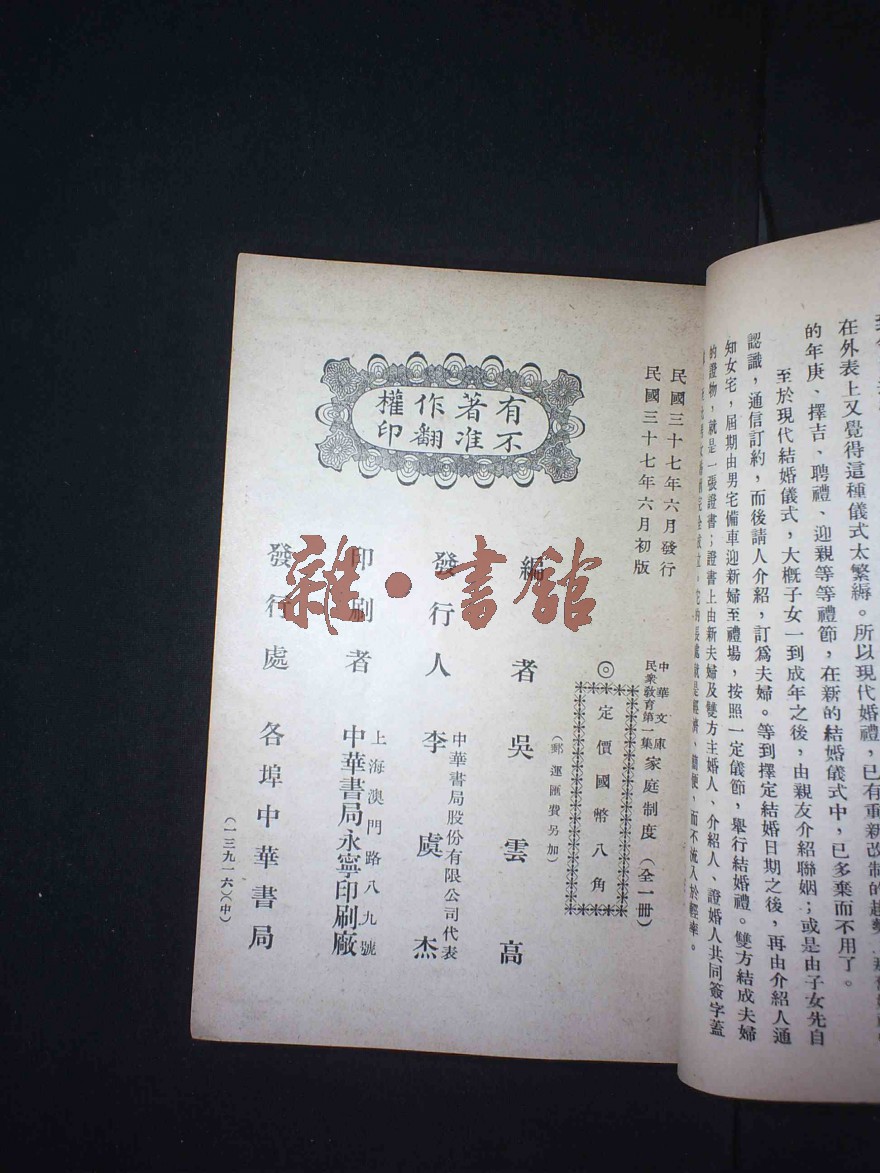 在外表上又覺得這種儀式太繁縟。所以現代婚禮，已有重新改制的趨勢
的年庚、擇吉、聘禮、迎親等等禮節，在新的結婚儀式中，已多棄而不用了。
至於現代結婚儀式，大概子女一到成年之後，由親友介紹聯姻；或是由子女先自
認識，通信訂約，而後請人介紹，訂為夫婦。等到擇定結婚日期之後，再由介紹人通
知女宅，屆期由男宅備車迎新婦至禮場，按照一定儀節，舉行結婚禮。雙方結成夫婦
的證物，就是一張證書；證書上由新夫婦及雙方主婚人、介紹人、證婚人共同簽字蓋
就是經濟、簡便，而不流入於輕率。
民國三十七年六月發行
民國三十七年六月初版
有著作權
不准翻印
中華文庫
民衆教育第一集
家庭制度（全一冊）
◎定價國幣八角
（郵運匯費另加）
編者 吳雲高
發行人 李虞杰
中華書局股份有限公司代表
印刷者 中華書局永寧印刷廠
上海澳門路八九號
發行處 各埠中華書局
（一三九一六）（中）
雜·書館